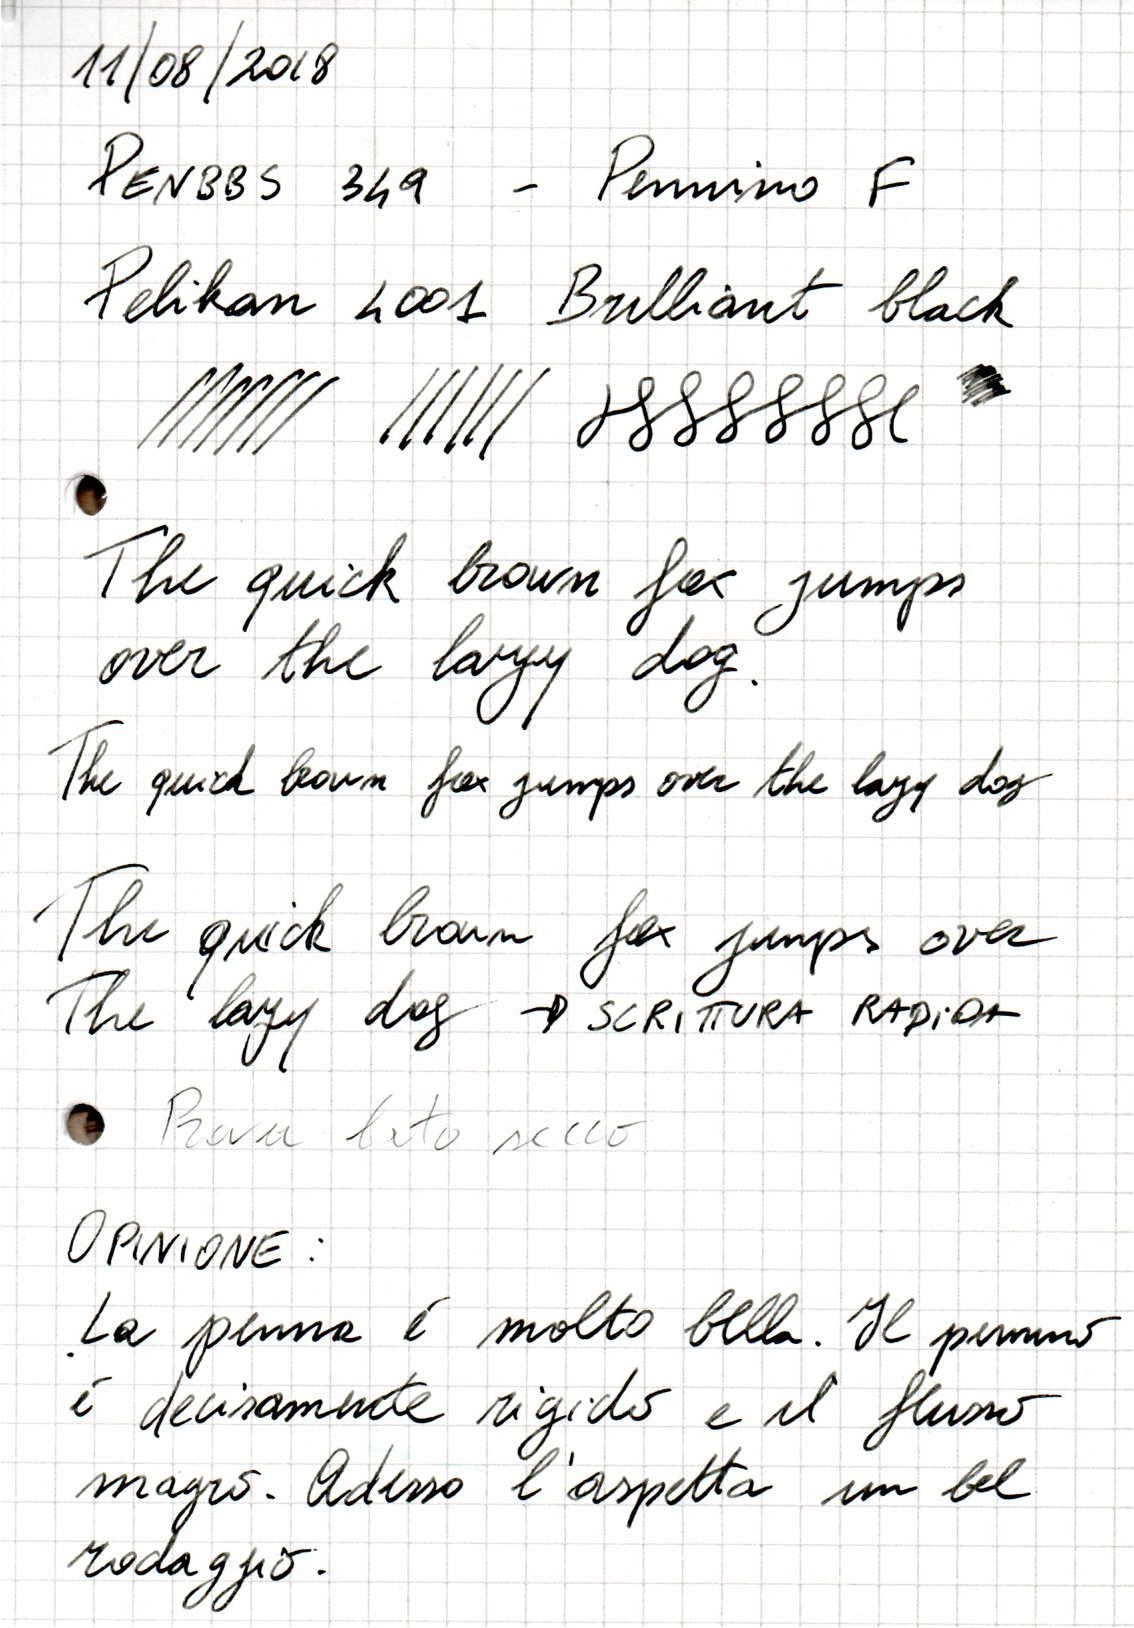 11/08/2018
PENBBS 349 - Pennino F
Pelikan 4001 Brilliant black
The quick brown fox jumps
over the lazy dog.
The quick brown fox jumps over the lazy dog
The quick brown fox jumps over
The lazy dog → SCRITTURA RAPIDA
Prova lato secco
OPINIONE:
La penna é molto bella. Il pennino
é decisamente rigido e il flusso
magro. Adesso l'aspetta un bel
rodaggio.